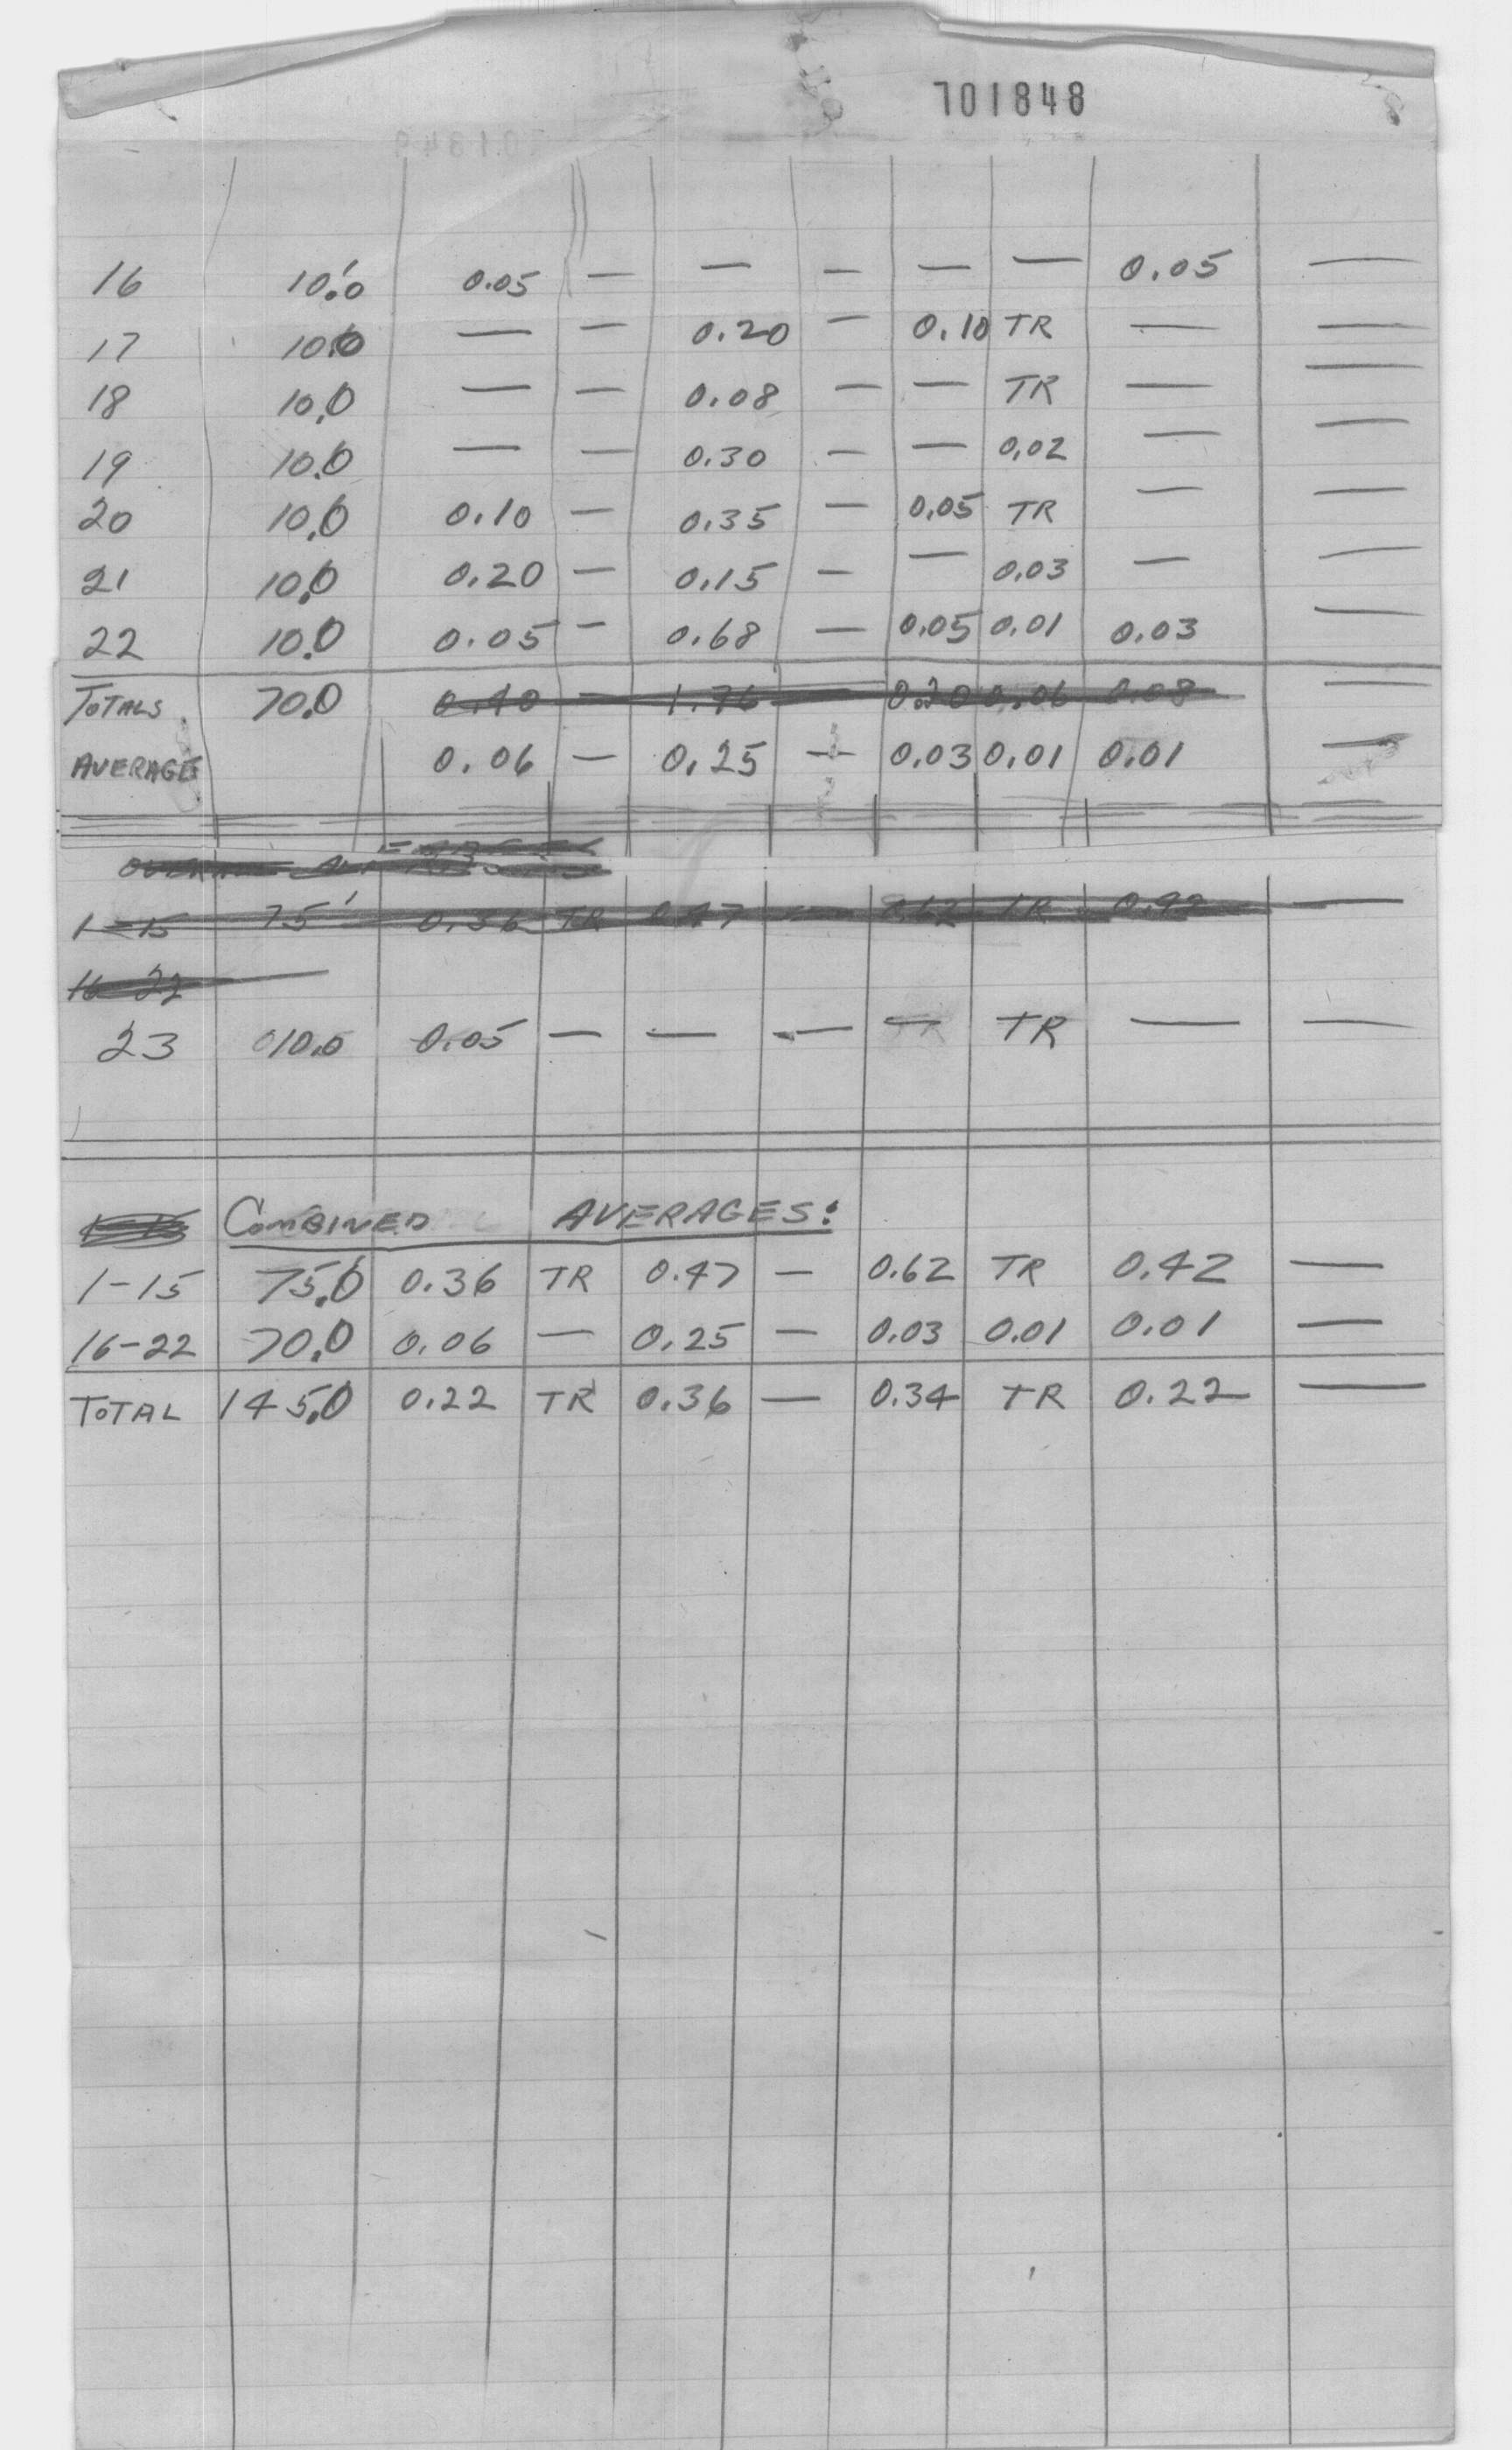 701848
16 10.0' 0.05 — — — — — 0.05 —
17 10.0 — — 0.20 — 0.10 TR — —
18 10.0 — — 0.08 — — TR — —
19 10.0 — — 0.30 — — 0.02 — —
20 10.0 0.10 — 0.35 — 0.05 TR — —
21 10.0 0.20 — 0.15 — — 0.03 — —
22 10.0 0.05 — 0.68 — 0.05 0.01 0.03 —
TOTALS 70.0 0.40 — 1.76 — 0.20 0.06 0.08 —
AVERAGE 0.06 — 0.25 — 0.03 0.01 0.01 —
1-15 75' 0.36 TR 0.47 — 0.62 TR 0.42 —
16-22
23 10.0 0.05 — — — — TR — —
COMBINED AVERAGES:
1-15 75.0' 0.36 TR 0.47 — 0.62 TR 0.42 —
16-22 70.0 0.06 — 0.25 — 0.03 0.01 0.01 —
TOTAL 145.0 0.22 TR 0.36 — 0.34 TR 0.22 —